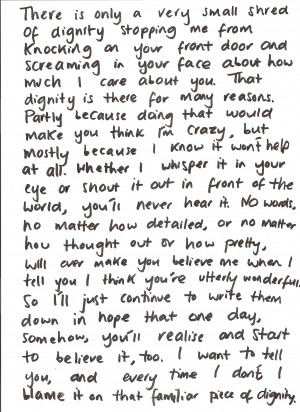 There is only a very small shred
of dignity stopping me from
knocking on your front door and
screaming in your face about how
much I care about you. That
dignity is there for many reasons.
Partly because doing that would
make you think I'm crazy, but
mostly because I know it won't help
at all. Whether I whisper it in your
eye or shout it out in front of the
world, you'll never hear it. No words,
no matter how detailed, or no matter
how thought out or how pretty,
will ever make you believe me when I
tell you I think you're utterly wonderful.
So I'll just continue to write them
down in hope that one day,
somehow, you'll realise and start
to believe it, too. I want to tell
you, and every time I don't I
blame it on that familiar piece of dignity.